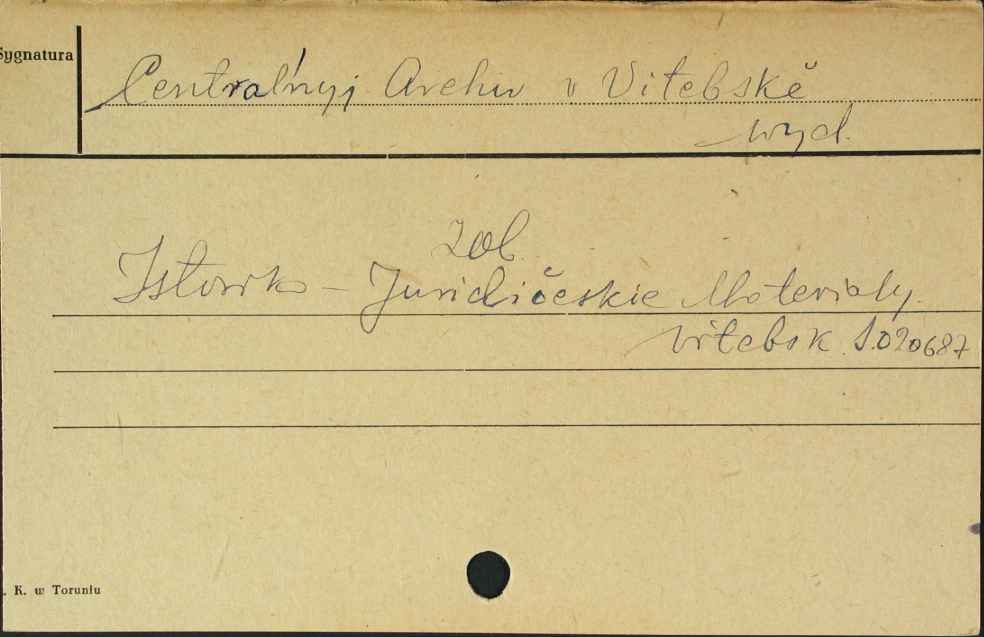 Sygnatura
Central'nyj Archiv v Vitebskě
wyd.
zob.
Istoriko-Juridičeskie Materialy.
Vitebsk S.020687
. K. w Toruniu